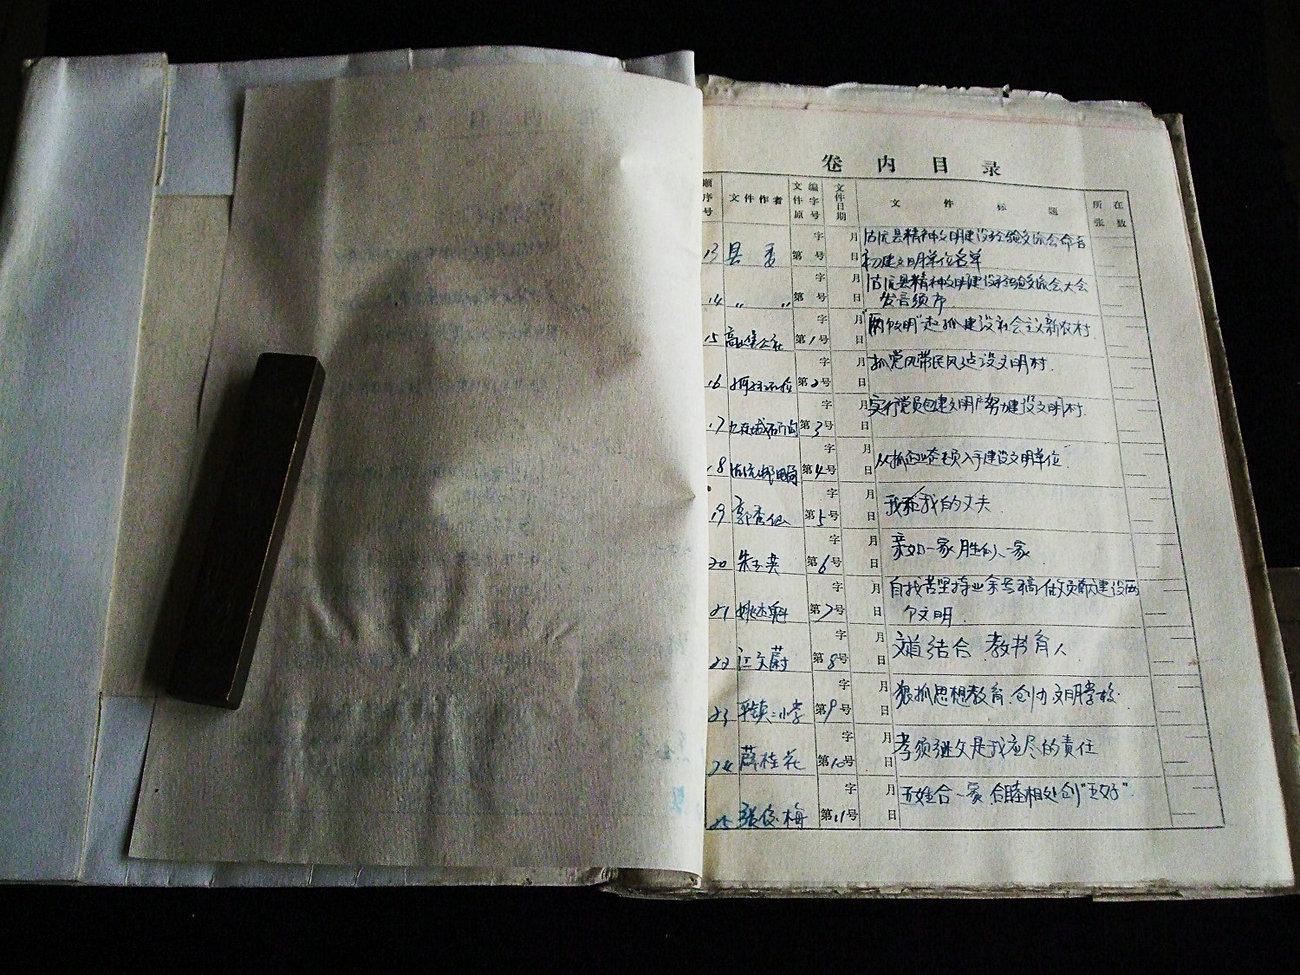 卷内目录
顺序号 文件作者 文件原编字号 文件日期 文件标题 所在张数
13 县委 字 第 号 月 日 沽沅县精神文明建设经验交流会命名
初建文明单位名单
14 〃 〃 字 第 号 月 日 沽沅县精神文明建设经验交流会大会
发言
15 公社 字 第1号 月 日 "两个文明"一起抓 建设社会主义新农村
16 字 第2号 月 日 抓党风带民风 建设文明村
17 字 第3号 月 日 实行党员包建文明户 努力建设文明村
18 沽沅邮电局 字 第4号 月 日 从抓企业整顿入手建设文明单位
19 郭秀仙 字 第5号 月 日 我和我的丈夫
20 朱玉英 字 第6号 月 日 亲如一家 胜似一家
21 字 第7号 月 日 自找苦 坚持业余 做贡献 建设两
个文明
22 江文蔚 字 第8号 月 日 文道结合 教书育人
23 平镇二小学 字 第9号 月 日 狠抓思想教育 创办文明学校
24 薛桂花 字 第10号 月 日 孝顺继父是我应尽的责任
25 张俊梅 字 第11号 月 日 五姓合一家 和睦相处创"五好"